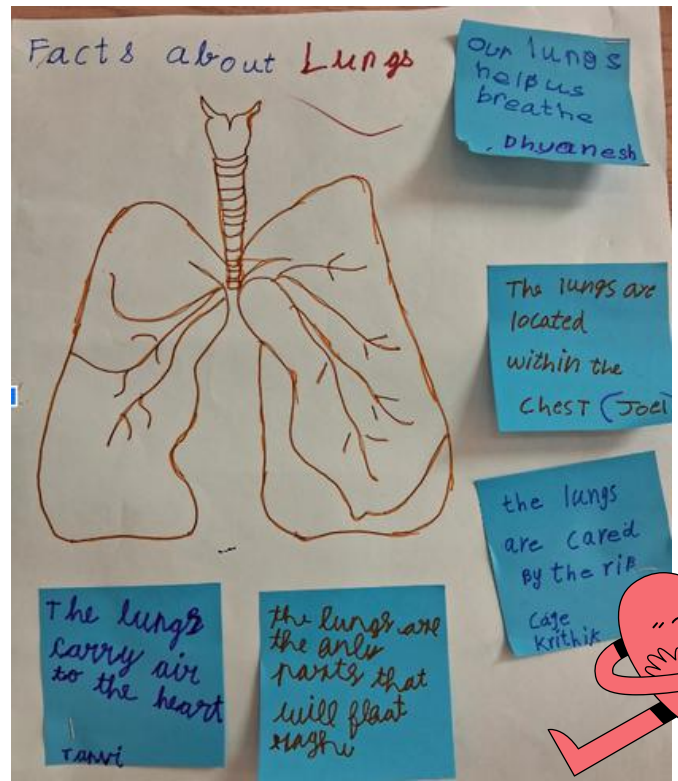 Facts about Lungs
Our lungs
help us
breathe
Dhyanesh
The lungs are
located
within the
Chest (Joel)
the lungs
are cared
By the rip
Cage
Krithik
The lungs
carry air
to the heart
Tanvi
the lungs are
the only
parts that
will float